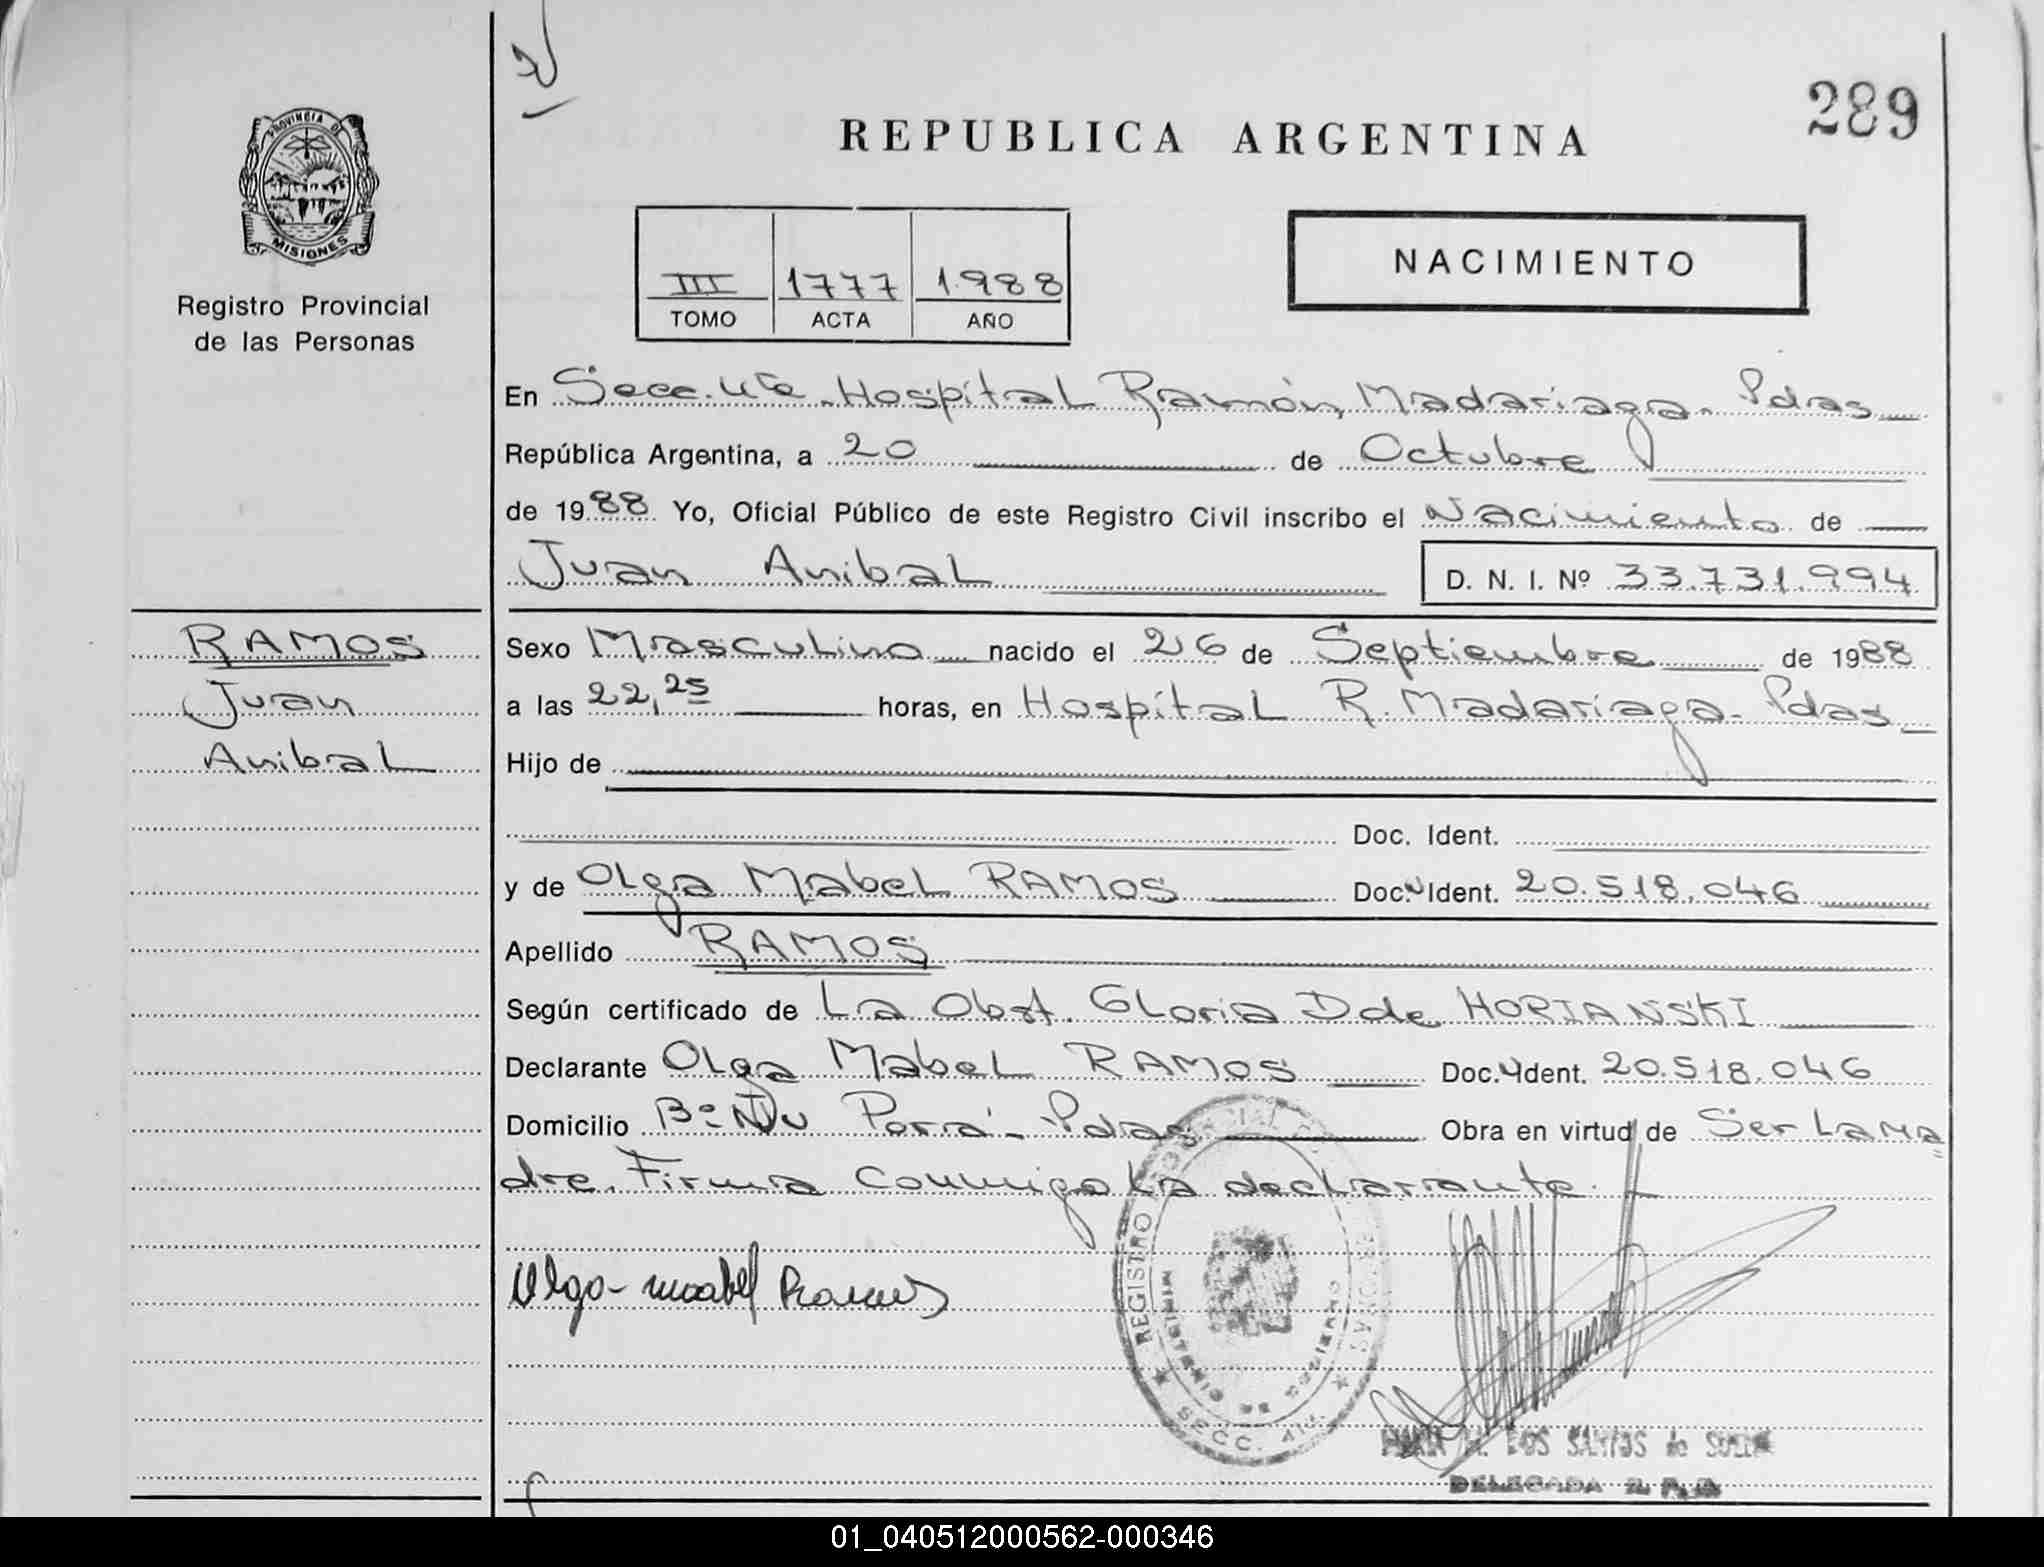 289
REPUBLICA ARGENTINA
PROVINCIA DE
MISIONES
Registro Provincial
de las Personas
NACIMIENTO
III 1777 1.988
TOMO ACTA AÑO
En Secc. 4ta. Hospital Ramón Madariaga. Pdas
República Argentina, a 20 de Octubre
de 1988 Yo, Oficial Público de este Registro Civil inscribo el Nacimiento de
Juan Anibal D. N. I. Nº 33.731.994
RAMOS
Juan
Anibal
Sexo Masculino nacido el 26 de Septiembre de 1988
a las 22,25 horas, en Hospital R. Madariaga. Pdas
Hijo de
Doc. Ident.
y de Olga Mabel RAMOS Doc. Ident. 20.518.046
Apellido RAMOS
Según certificado de La Obst. Gloria D de HORIANSKI
Declarante Olga Mabel RAMOS Doc. Ident. 20.518.046
Domicilio Bº Ñu Porá - Pdas Obra en virtud de Ser La Ma
dre. Firma conmigo La declarante.
Olga mabel Ramos
REGISTRO
SECC.
DOS SANTOS de
DELEGADA
01_040512000562-000346